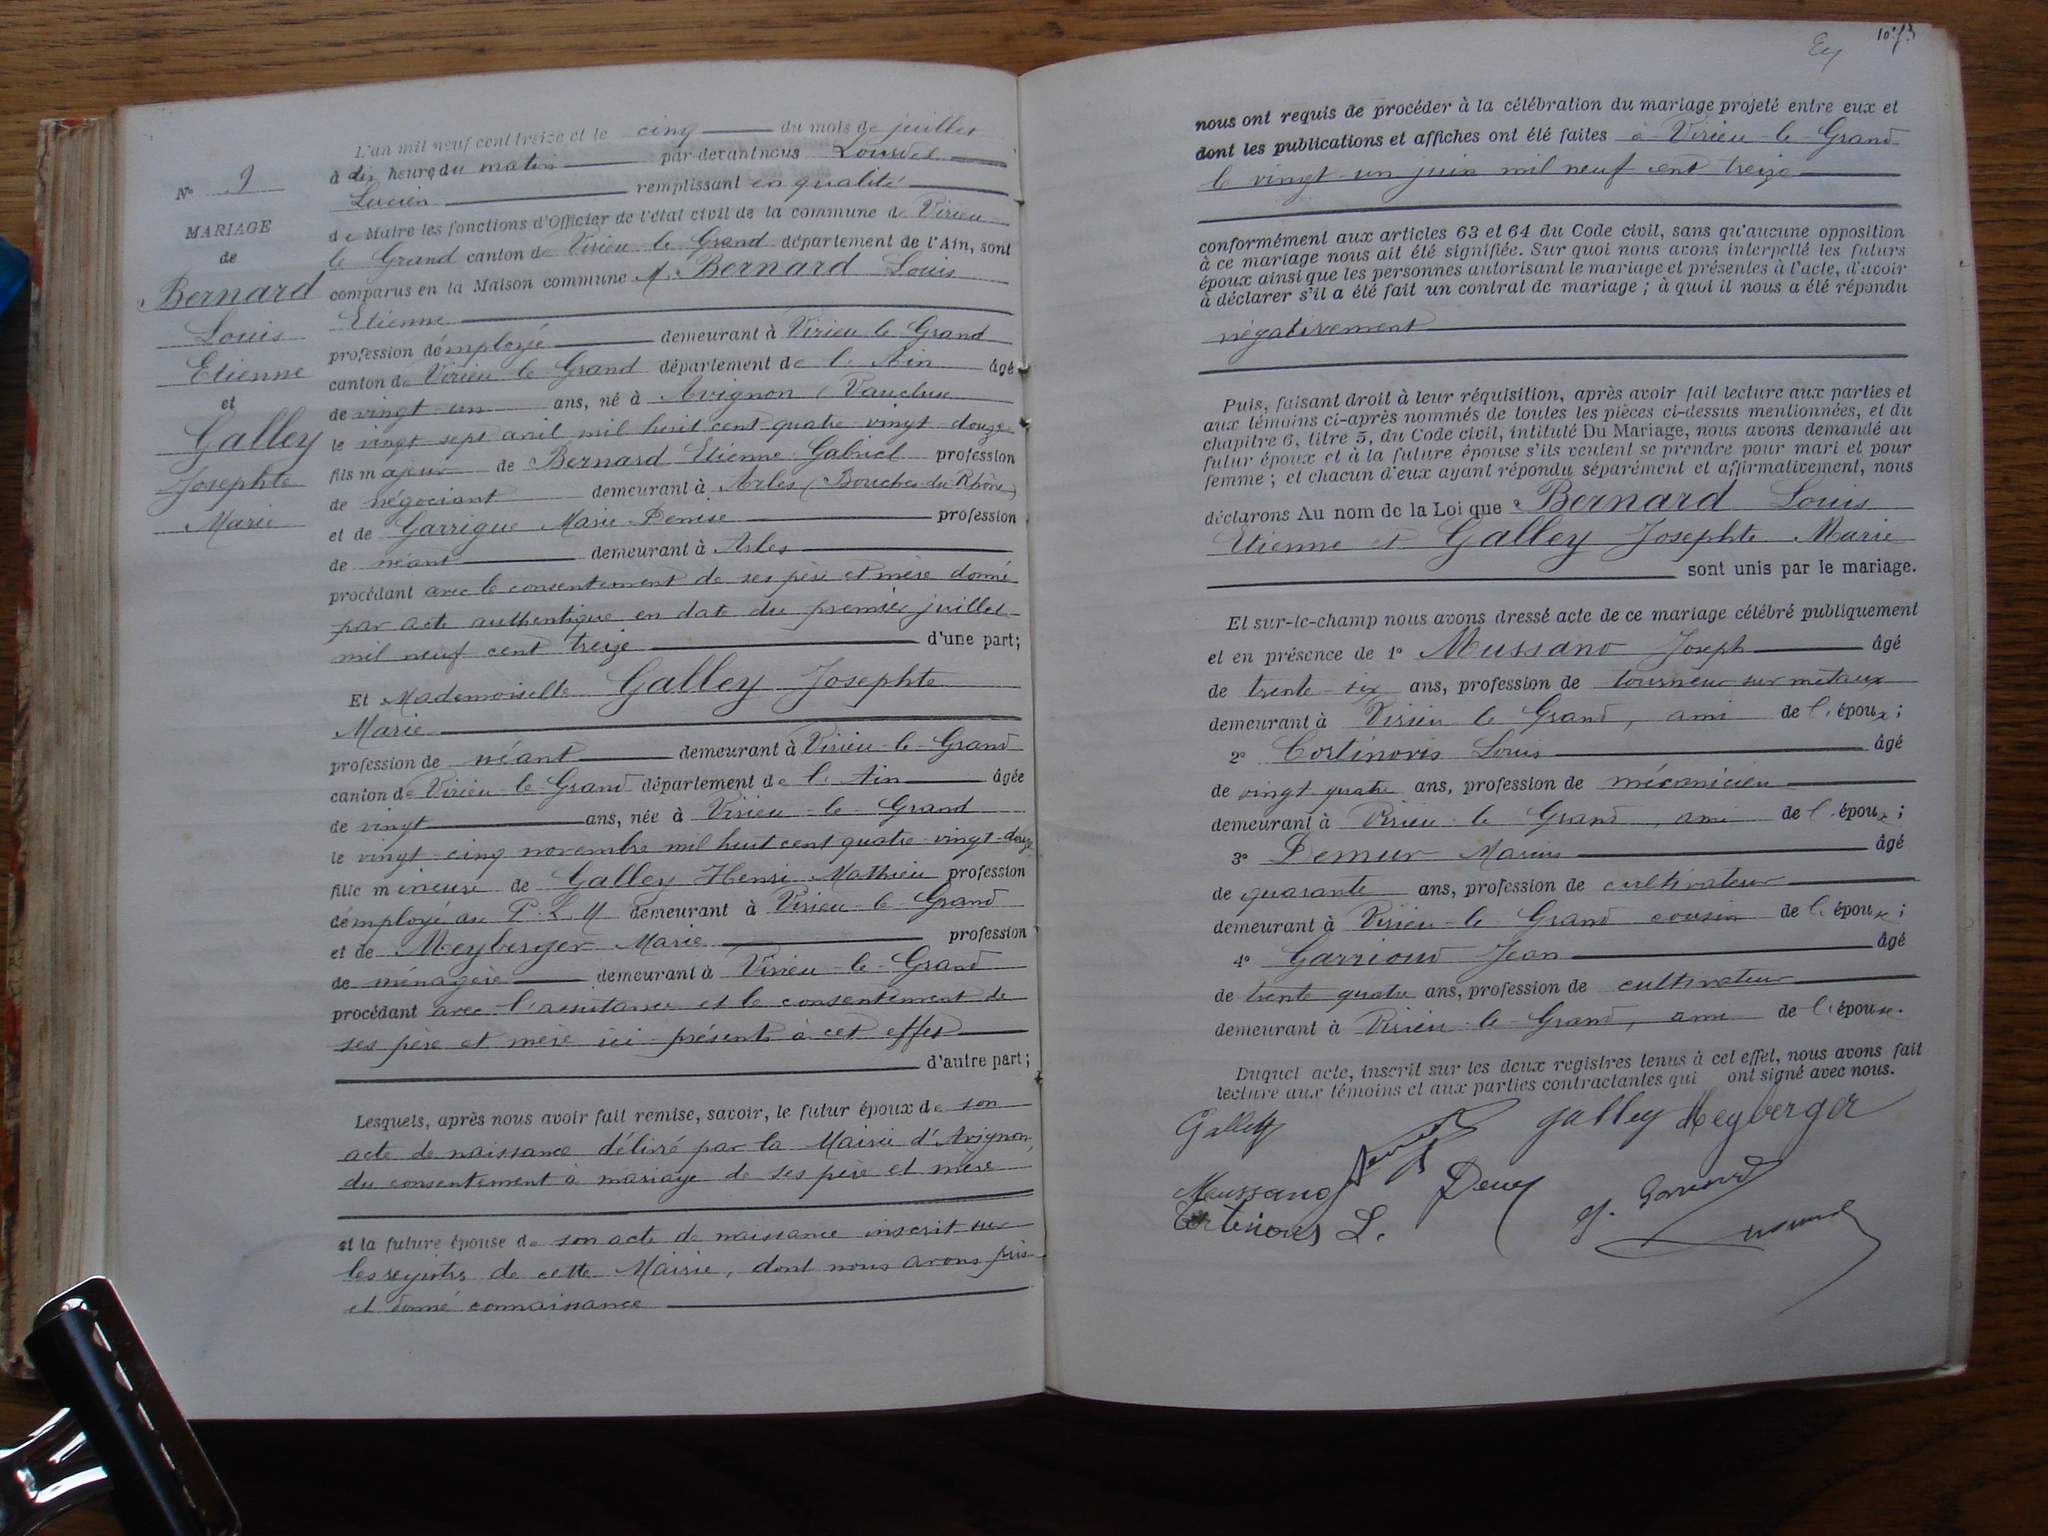 N° 9
MARIAGE
de
Bernard
Louis
Etienne
et
Galley
Josephte
Marie
L'an mil neuf cent treize et le cinq du mois de juillet
à dix heures du matin par-devant nous Lourdel
Lucien remplissant en qualité
de Maire les fonctions d'Officier de l'état civil de la commune de Virieu
le Grand canton de Virieu le Grand département de l'Ain, sont
comparus en la Maison commune M. Bernard Louis
Etienne
profession d'employé demeurant à Virieu le Grand
canton de Virieu le Grand département de l'Ain âgé
de vingt-un ans, né à Avignon (Vaucluse
le vingt-sept avril mil huit cent quatre-vingt-douze
fils majeur de Bernard Etienne Gabriel profession
de négociant demeurant à Arles (Bouches du Rhône)
et de Garrigue Marie Denise profession
de néant demeurant à Arles
procédant avec le consentement de ses père et mère donné
par acte authentique en date du premier juillet
mil neuf cent treize d'une part;
Et Mademoiselle Galley Josephte
Marie
profession de néant demeurant à Virieu-le-Grand
canton de Virieu-le-Grand département de l'Ain âgée
de vingt ans, née à Virieu-le-Grand
le vingt-cinq novembre mil huit cent quatre-vingt-douze
fille mineure de Galley Henri Mathieu profession
d'employé au P.L.M demeurant à Virieu-le-Grand
et de Meyberger Marie profession
de ménagère demeurant à Virieu-le-Grand
procédant avec l'assistance et le consentement de
ses père et mère ici présents à cet effet
d'autre part;
Lesquels, après nous avoir fait remise, savoir, le futur époux de son
acte de naissance délivré par la Mairie d'Avignon,
du consentement à mariage de ses père et mère
et la future épouse de son acte de naissance inscrit sur
les registres de cette Mairie, dont nous avons pris
et donné connaissance
nous ont requis de procéder à la célébration du mariage projeté entre eux et
dont les publications et affiches ont été faites à Virieu-le-Grand
le vingt-un juin mil neuf cent treize
conformément aux articles 63 et 64 du Code civil, sans qu'aucune opposition
à ce mariage nous ait été signifiée. Sur quoi nous avons interpellé les futurs
époux ainsi que les personnes autorisant le mariage et présentes à l'acte, d'avoir
à déclarer s'il a été fait un contrat de mariage; à quoi il nous a été répondu
négativement
Puis, faisant droit à leur réquisition, après avoir fait lecture aux parties et
aux témoins ci-après nommés de toutes les pièces ci-dessus mentionnées, et du
chapitre 6, titre 5, du Code civil, intitulé Du Mariage, nous avons demandé au
futur époux et à la future épouse s'ils veulent se prendre pour mari et pour
femme; et chacun d'eux ayant répondu séparément et affirmativement, nous
déclarons Au nom de la Loi que Bernard Louis
Etienne et Galley Josephte Marie
sont unis par le mariage.
Et sur-le-champ nous avons dressé acte de ce mariage célébré publiquement
et en présence de 1° Mussano Joseph âgé
de trente-six ans, profession de tourneur sur métaux
demeurant à Virieu le Grand, ami de l'époux;
2° Cortinovis Louis âgé
de vingt quatre ans, profession de mécanicien
demeurant à Virieu le Grand, ami de l'époux;
3° Demur Marius âgé
de quarante ans, profession de cultivateur
demeurant à Virieu-le-Grand cousin de l'épouse;
4° Garrioud Jean âgé
de trente quatre ans, profession de cultivateur
demeurant à Virieu-le-Grand, ami de l'épouse.
Duquel acte, inscrit sur les deux registres tenus à cet effet, nous avons fait
lecture aux témoins et aux parties contractantes qui ont signé avec nous.
Galley Galley Meyberger
Mussano J. Garrioud
Cortinovis L.